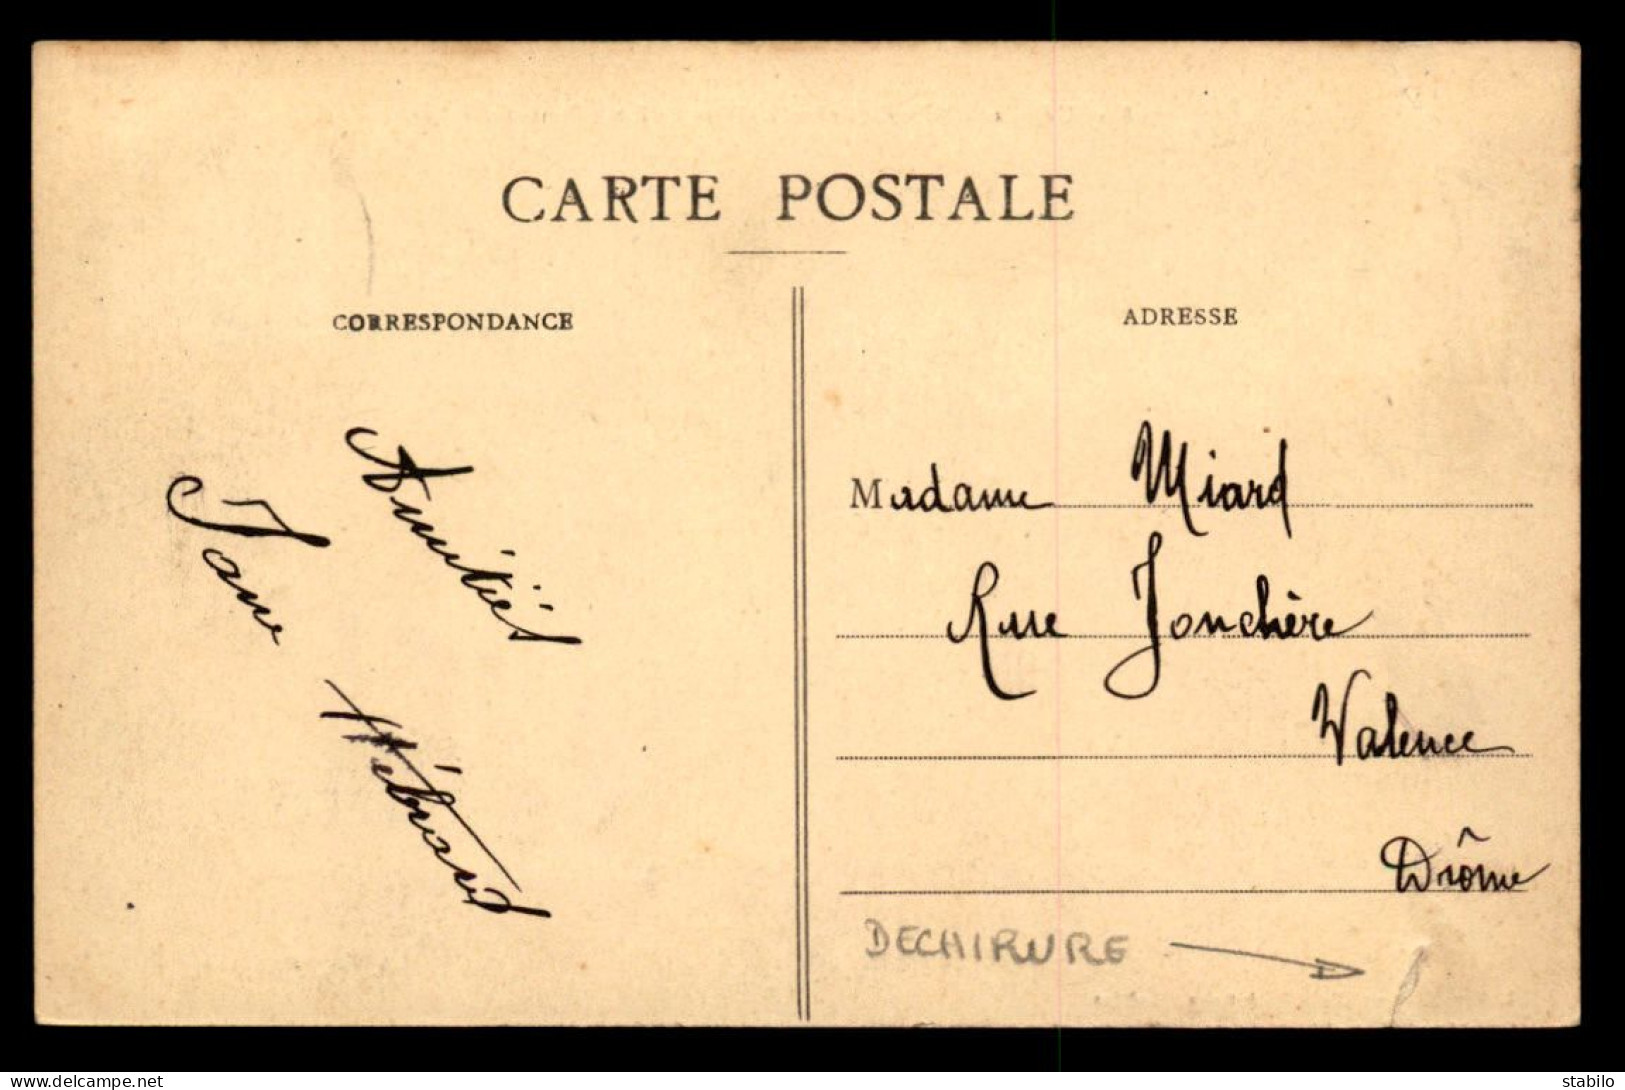 CARTE POSTALE
CORRESPONDANCE
ADRESSE
Amitiés
Jane
Hébrard
Madame Miard
Rue Jonchère
Valence
Drôme
DECHIRURE
www.delcampe.net
stabilo